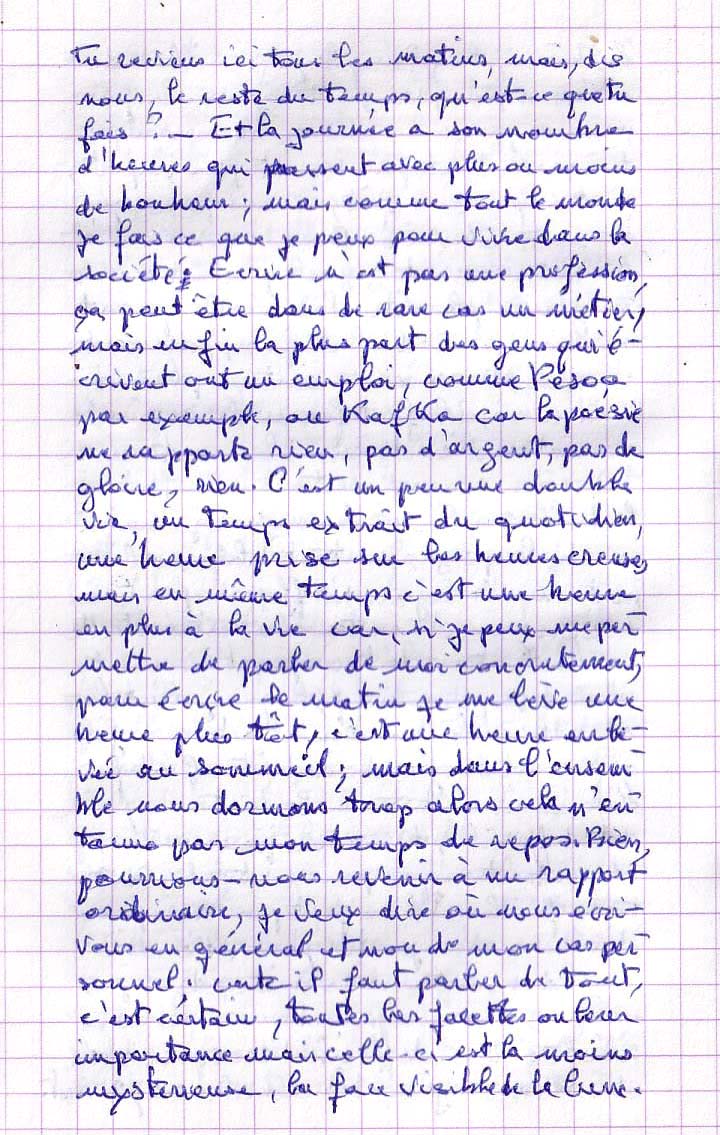 Tu reviens ici tous les matins, mais, dis
nous, le reste du temps, qu'est-ce que tu
fais ? – Et la journée a son nombre
d'heures qui passent avec plus ou moins
de bonheur ; mais comme tout le monde
je fais ce que je peux pour vivre dans la
société. Ecrire n'est pas une profession,
ça peut être dans de rare cas un métier,
mais enfin la plus part des gens qui é-
crivent ont un emploi, comme Pésoa
par exemple, ou Kafka car la poésie
ne rapporte rien, pas d'argent, pas de
gloire, rien. C'est un peu une double
vie, un temps extrait du quotidien,
une heure prise sur les heures creuses,
mais en même temps c'est une heure
en plus à la vie car, si je peux me per-
mettre de parler de moi concrètement,
pour écrire le matin je me lève une
heure plus tôt, c'est une heure enle-
vée au sommeil ; mais dans l'ensem-
ble nous dormons trop alors cela n'en-
tame pas mon temps de repos. Bien,
pourrions-nous revenir à un rapport
ordinaire, je veux dire où nous écri-
vons en général et non de mon cas per-
sonnel. certe il faut parler de tout,
c'est certain, toutes les facettes on leur
importance mais celle-ci est la moins
mystérieuse, la face visible de la lune.